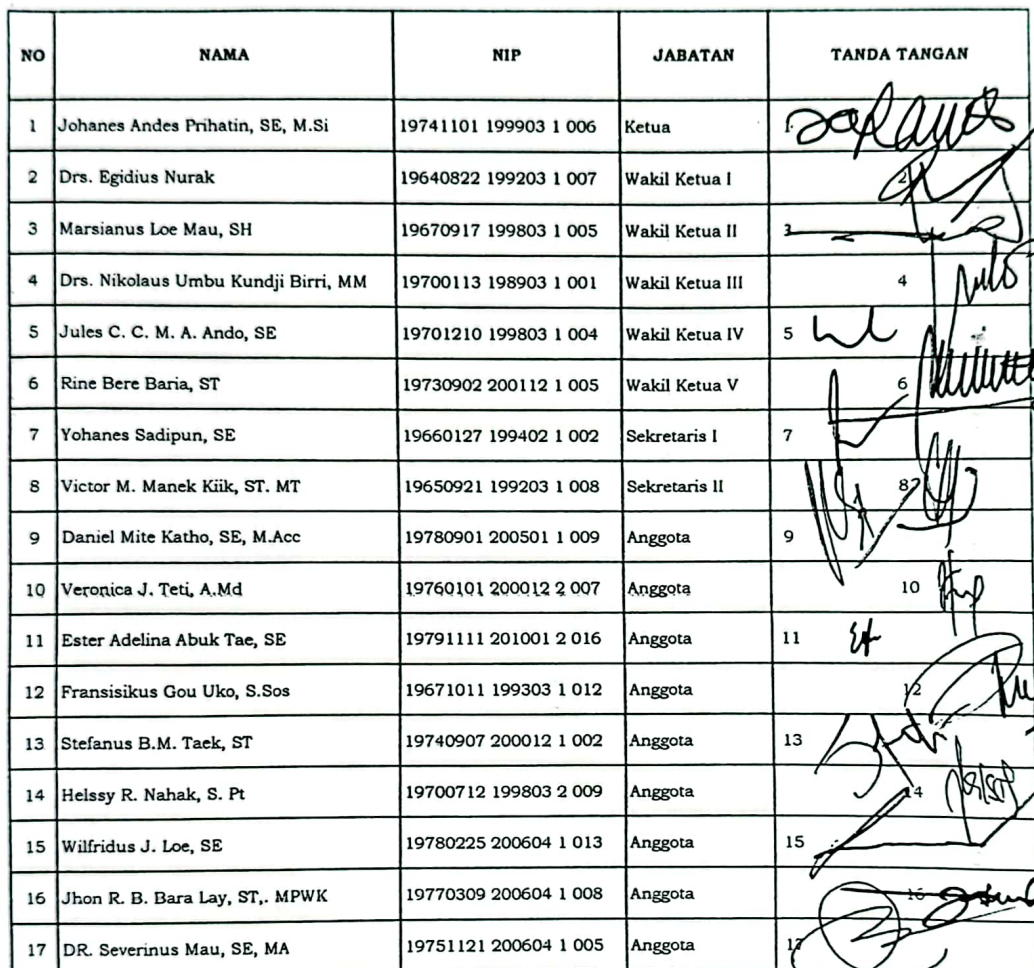 NO NAMA NIP JABATAN TANDA TANGAN
1 Johanes Andes Prihatin, SE, M.Si 19741101 199903 1 006 Ketua 1
2 Drs. Egidius Nurak 19640822 199203 1 007 Wakil Ketua I 2
3 Marsianus Loe Mau, SH 19670917 199803 1 005 Wakil Ketua II 3
4 Drs. Nikolaus Umbu Kundji Birri, MM 19700113 198903 1 001 Wakil Ketua III 4
5 Jules C. C. M. A. Ando, SE 19701210 199803 1 004 Wakil Ketua IV 5
6 Rine Bere Baria, ST 19730902 200112 1 005 Wakil Ketua V 6
7 Yohanes Sadipun, SE 19660127 199402 1 002 Sekretaris I 7
8 Victor M. Manek Kiik, ST. MT 19650921 199203 1 008 Sekretaris II 8
9 Daniel Mite Katho, SE, M.Acc 19780901 200501 1 009 Anggota 9
10 Veronica J. Teti, A.Md 19760101 200012 2 007 Anggota 10
11 Ester Adelina Abuk Tae, SE 19791111 201001 2 016 Anggota 11
12 Fransisikus Gou Uko, S.Sos 19671011 199303 1 012 Anggota 12
13 Stefanus B.M. Taek, ST 19740907 200012 1 002 Anggota 13
14 Helssy R. Nahak, S. Pt 19700712 199803 2 009 Anggota 14
15 Wilfridus J. Loe, SE 19780225 200604 1 013 Anggota 15
16 Jhon R. B. Bara Lay, ST,. MPWK 19770309 200604 1 008 Anggota 16
17 DR. Severinus Mau, SE, MA 19751121 200604 1 005 Anggota 17